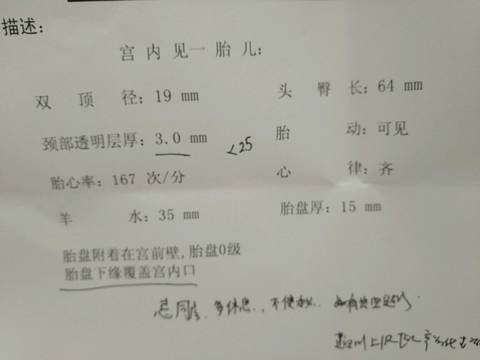 描述：
宫内见一胎儿：
双顶径：19 mm 头臀长：64 mm
颈部透明层厚：3.0 mm <25 胎动：可见
胎心率：167 次/分 心律：齐
羊水：35 mm 胎盘厚：15 mm
胎盘附着在宫前壁，胎盘0级
胎盘下缘覆盖宫内口
忌同房，多休息，不使劲